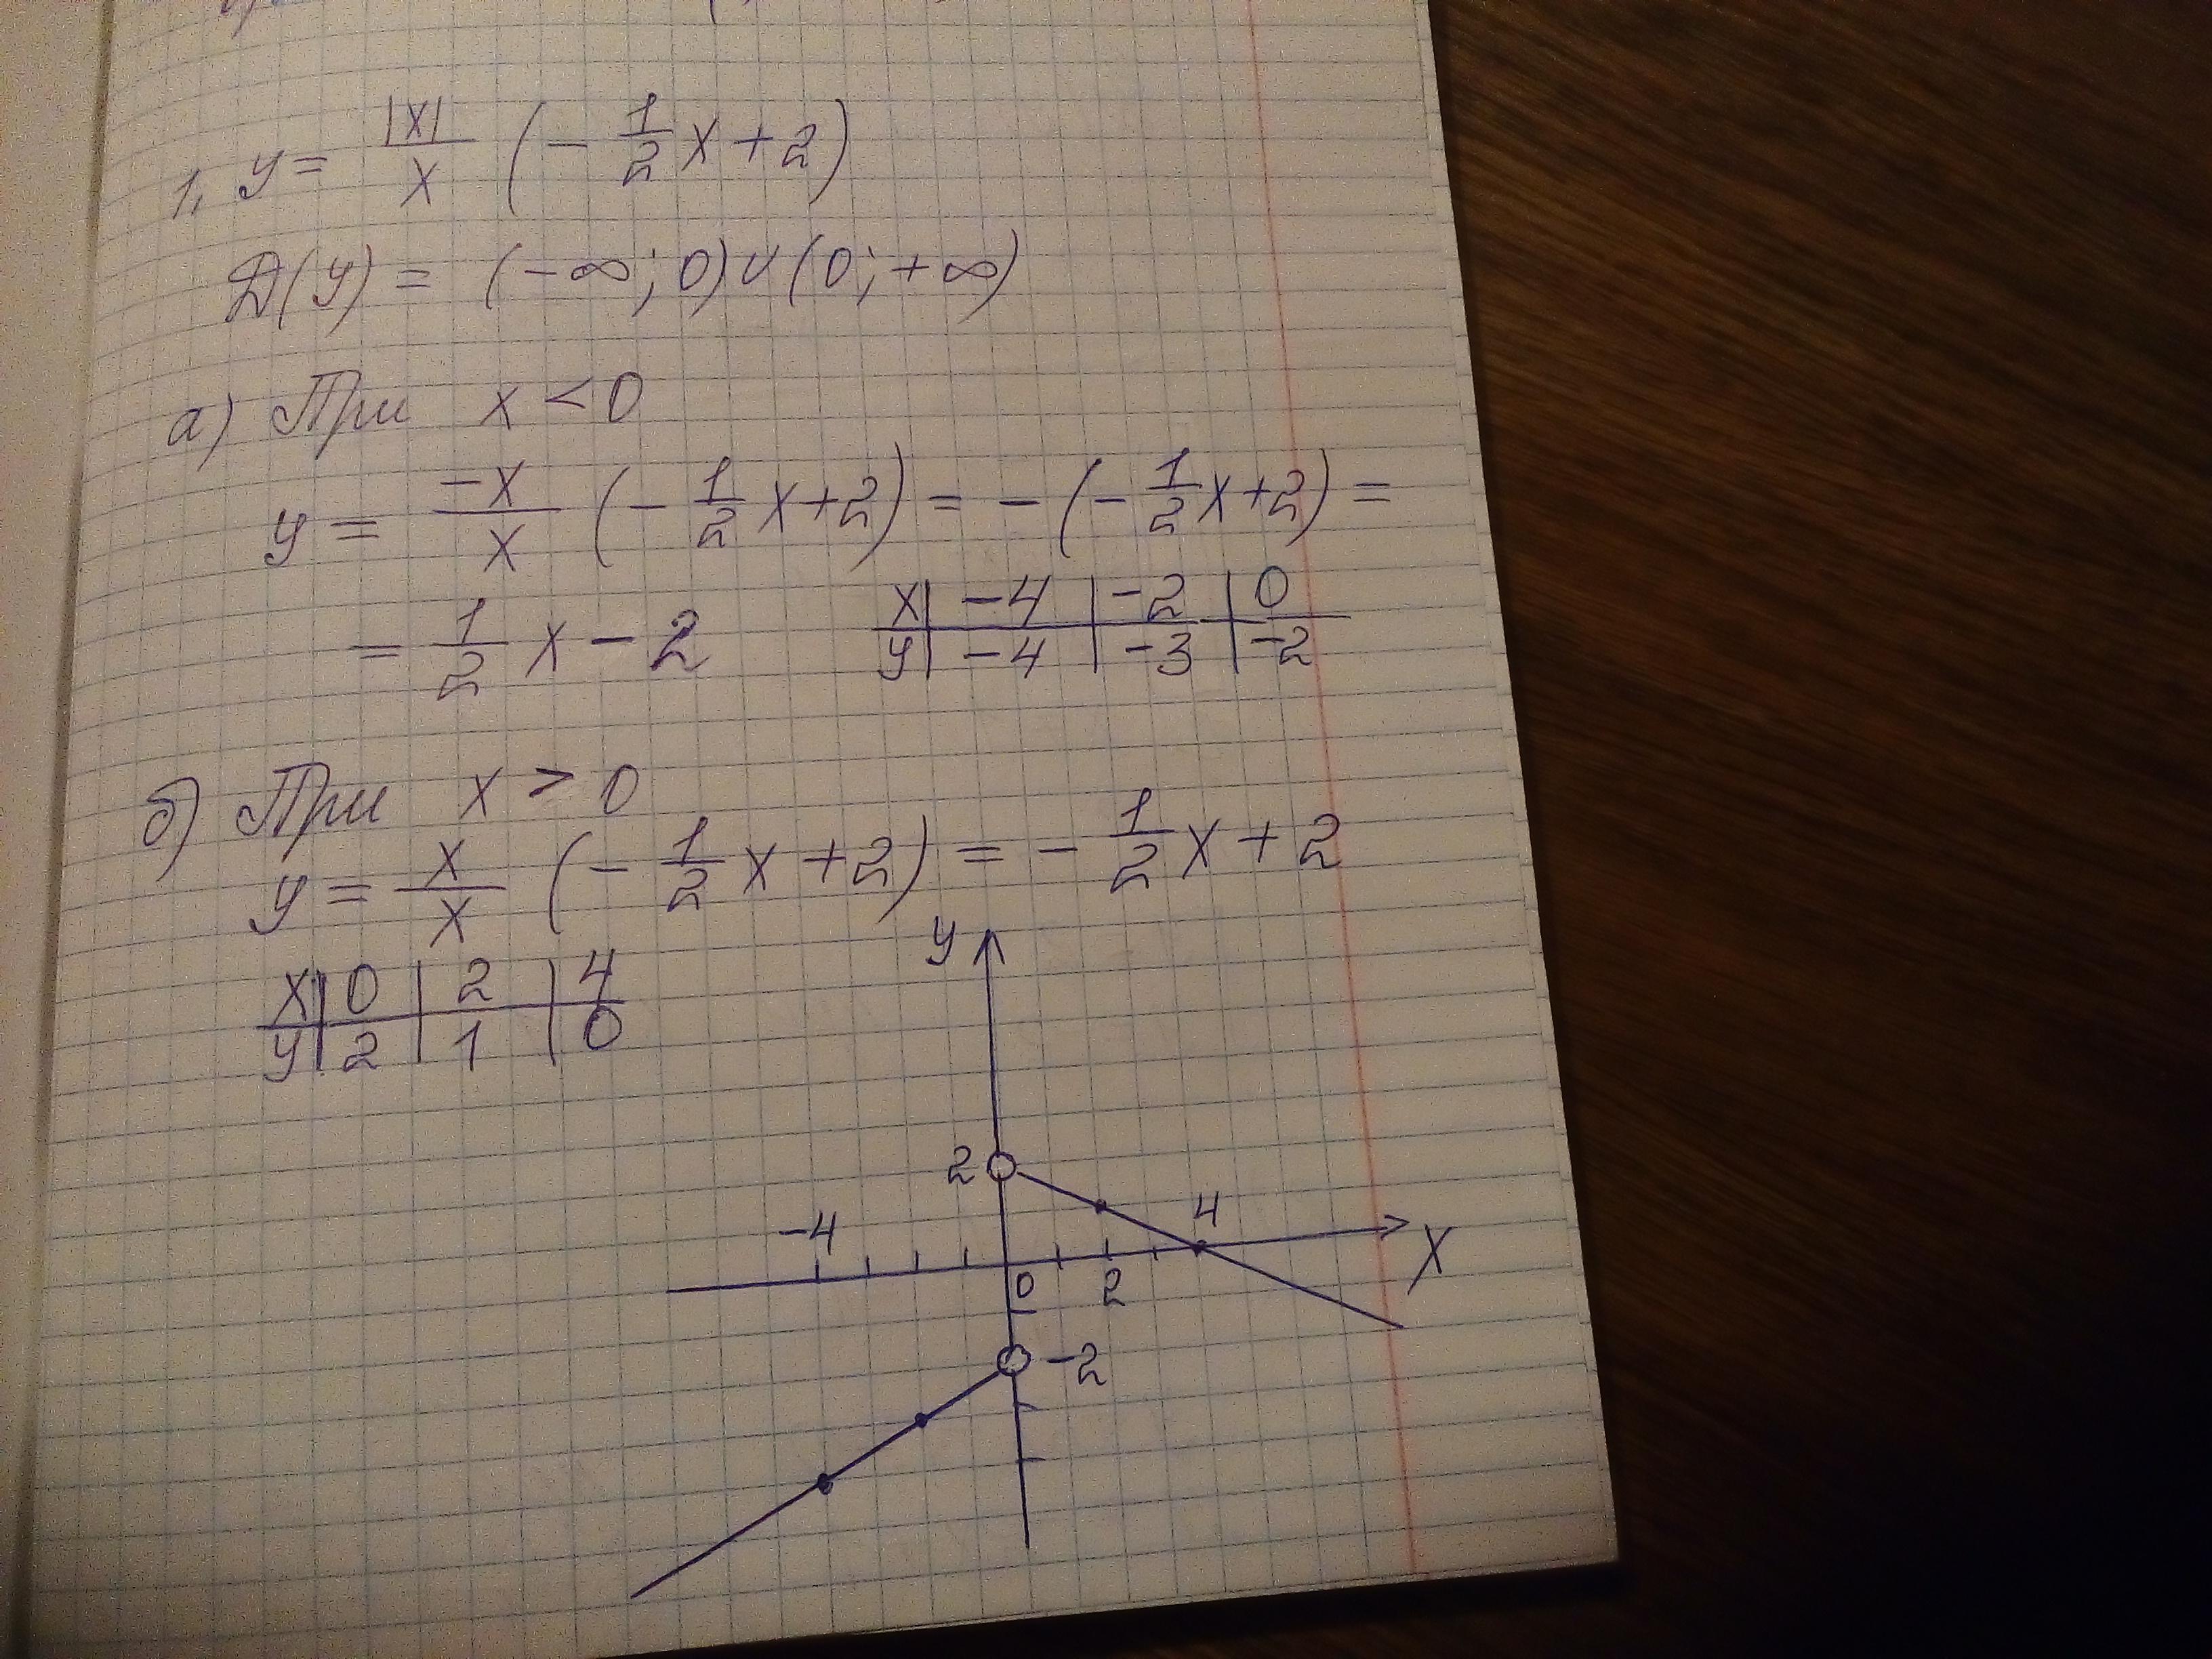 1, y = |x|/x (-1/2 x + 2)
Д(y) = (-∞; 0) ∪ (0; +∞)
а) При x < 0
y = -x/x (-1/2 x + 2) = -(-1/2 x + 2) =
= 1/2 x - 2
x | -4 | -2 | 0
y | -4 | -3 | -2
б) При x > 0
y = x/x (-1/2 x + 2) = -1/2 x + 2
x | 0 | 2 | 4
y | 2 | 1 | 0
y
2
-4
4
x
0
2
-2